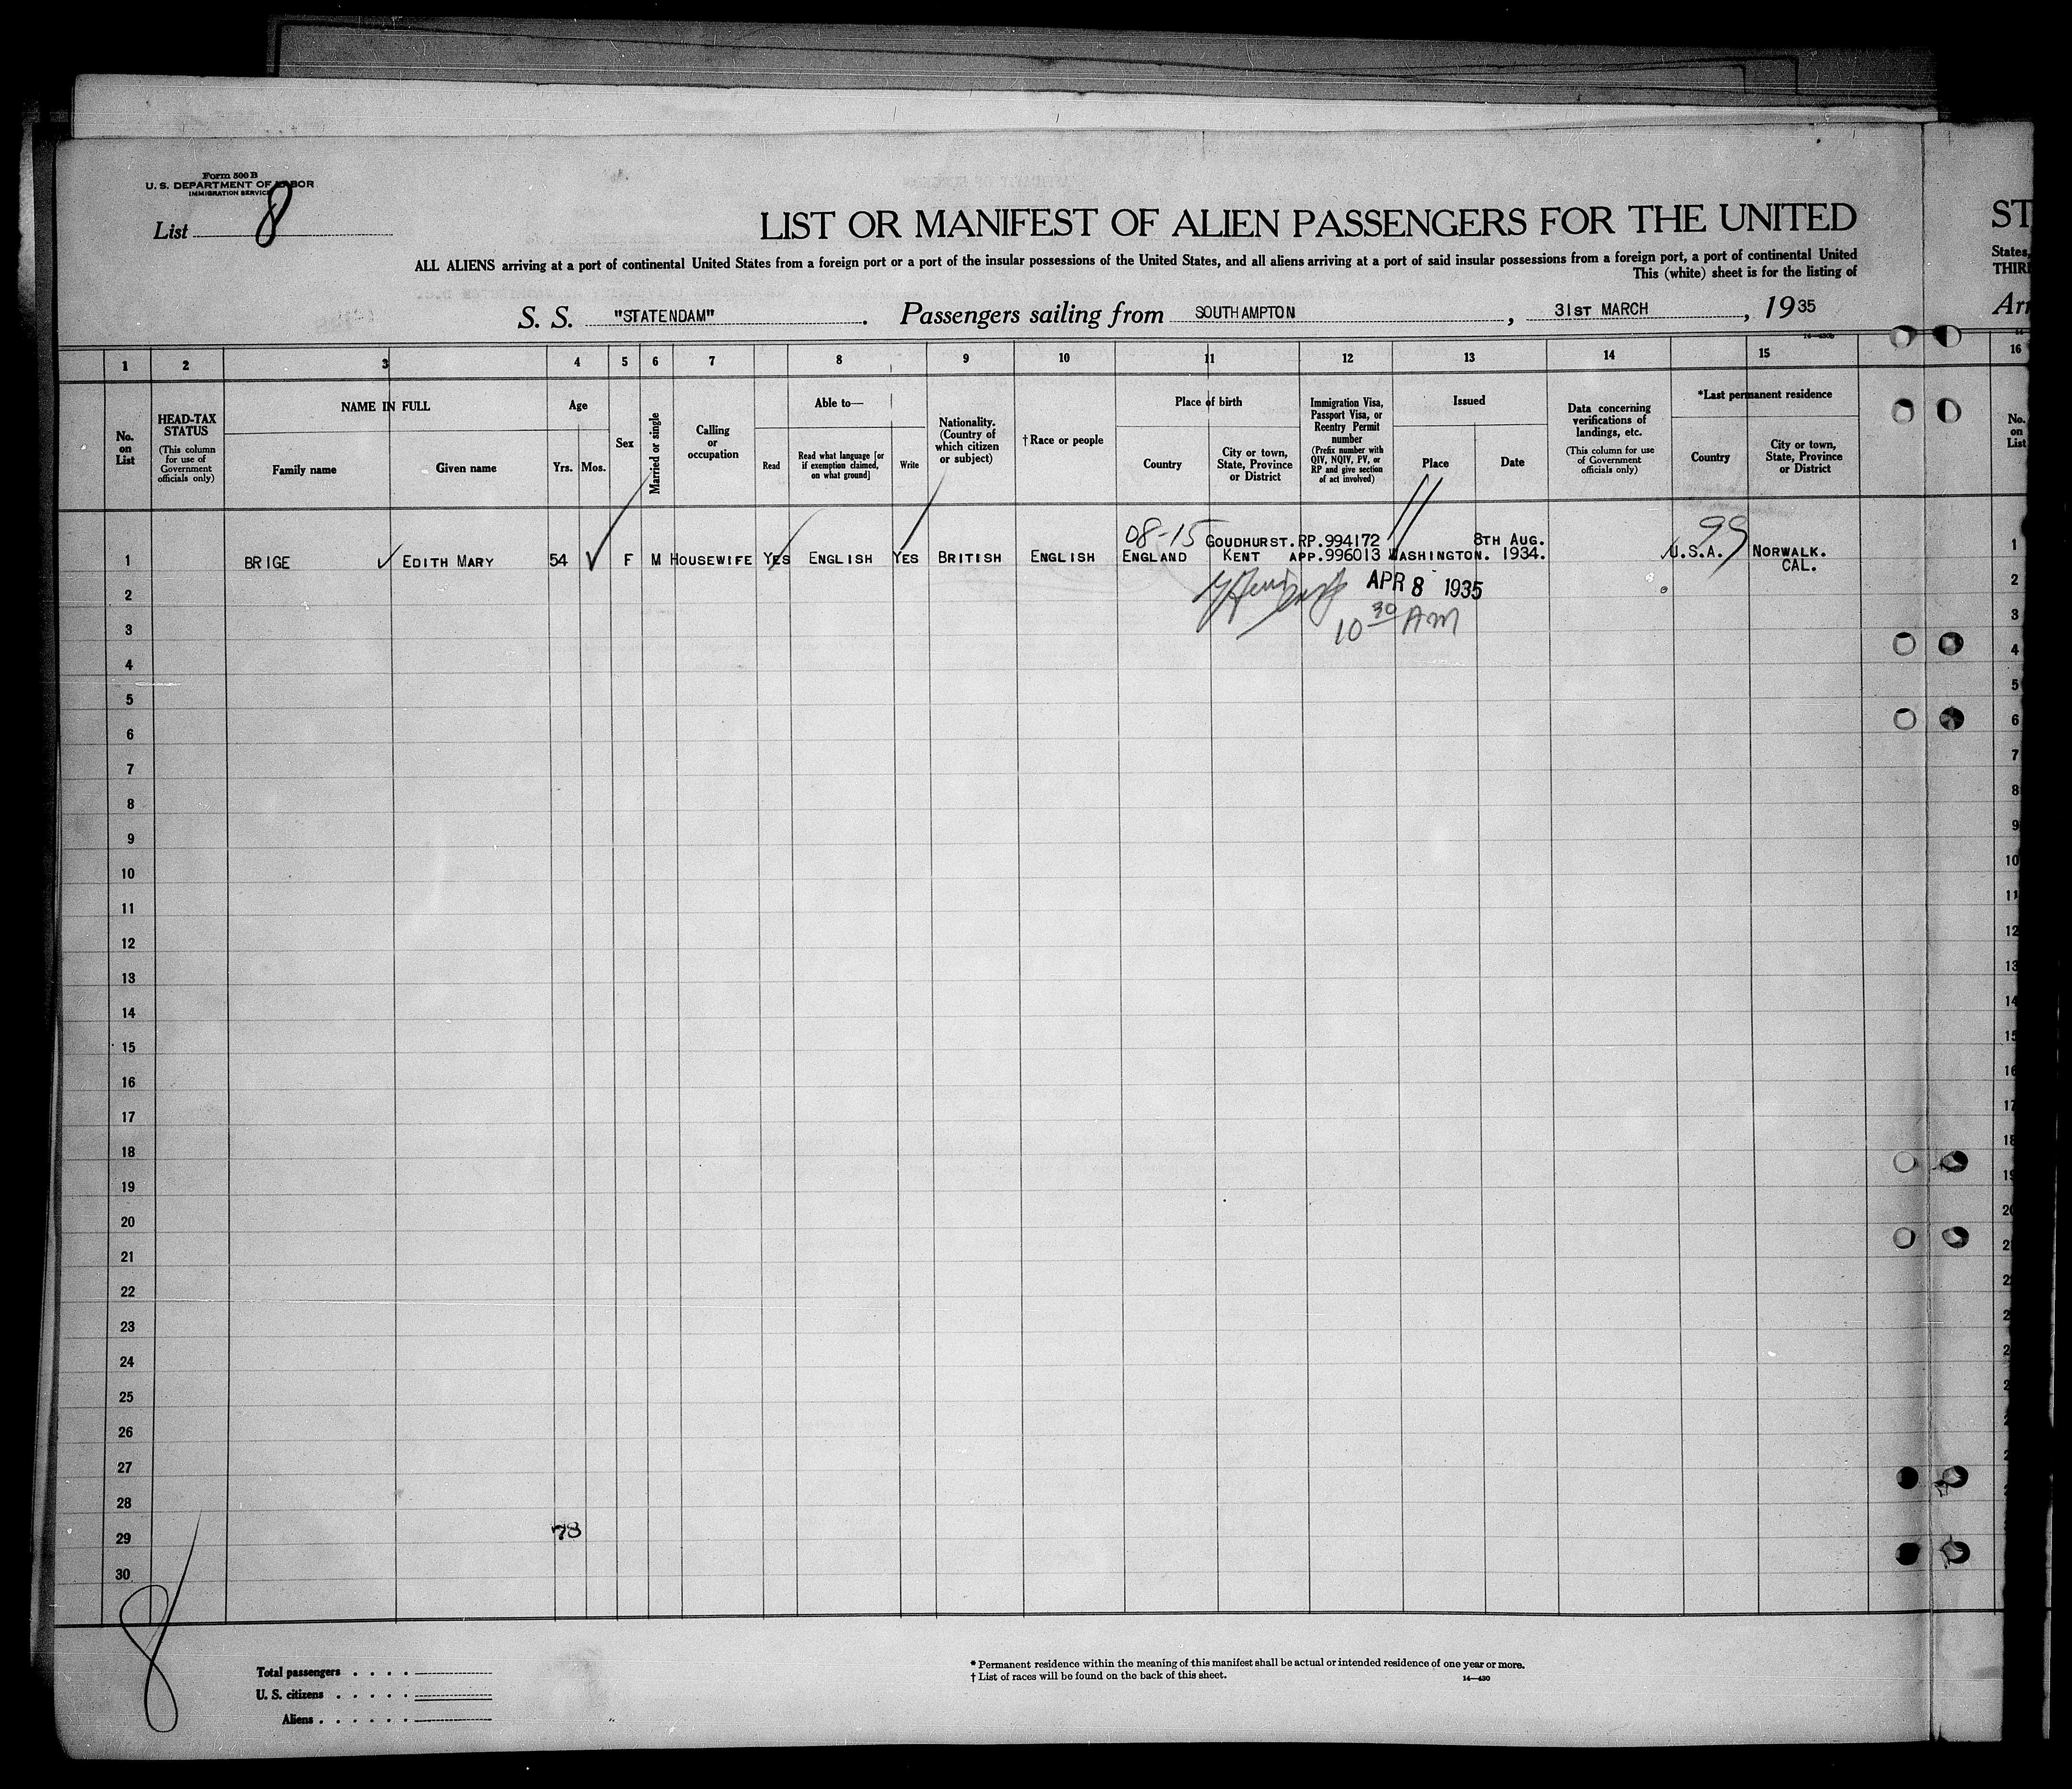 Form 500 B
U. S. DEPARTMENT OF LABOR
IMMIGRATION SERVICE
List 8
LIST OR MANIFEST OF ALIEN PASSENGERS FOR THE UNITED
ST
ALL ALIENS arriving at a port of continental United States from a foreign port or a port of the insular possessions of the United States, and all aliens arriving at a port of said insular possessions from a foreign port, a port of continental United
States,
This (white) sheet is for the listing of
THIR
S. S. "STATENDAM". Passengers sailing from SOUTHAMPTON, 31ST MARCH, 1935
Arr
1 2 3 4 5 6 7 8 9 10 11 12 13 14 15 16
No. on List
HEAD-TAX STATUS
(This column for use of Government officials only)
NAME IN FULL
Family name
Given name
Age
Yrs. Mos.
Sex
Married or single
Calling or occupation
Able to—
Read
Read what language [or if exemption claimed, on what ground]
Write
Nationality. (Country of which citizen or subject)
† Race or people
Place of birth
Country
City or town, State, Province or District
Immigration Visa, Passport Visa, or Reentry Permit number
(Prefix number with QIV, NQIV, PV, or RP and give section of act involved)
Issued
Place
Date
Data concerning verifications of landings, etc.
(This column for use of Government officials only)
*Last permanent residence
Country
City or town, State, Province or District
No. on List
08-15
99
GOUDHURST. RP.994172 8TH AUG.
1 BRIGE EDITH MARY 54 F M HOUSEWIFE YES ENGLISH YES BRITISH ENGLISH ENGLAND KENT APP.996013 WASHINGTON. 1934. U.S.A. NORWALK. 1
CAL.
2 APR 8 1935 2
3 10 30 AM 3
4 4
5 5
6 6
7 7
8 8
9 9
10 10
11 11
12 12
13 13
14 14
15 15
16 16
17 17
18 18
19 19
20 20
21
22
23
24
25
26
27
28
29 78
30
8
Total passengers . . . .
U. S. citizens . . . . .
Aliens . . . . . .
* Permanent residence within the meaning of this manifest shall be actual or intended residence of one year or more.
† List of races will be found on the back of this sheet.
14—430